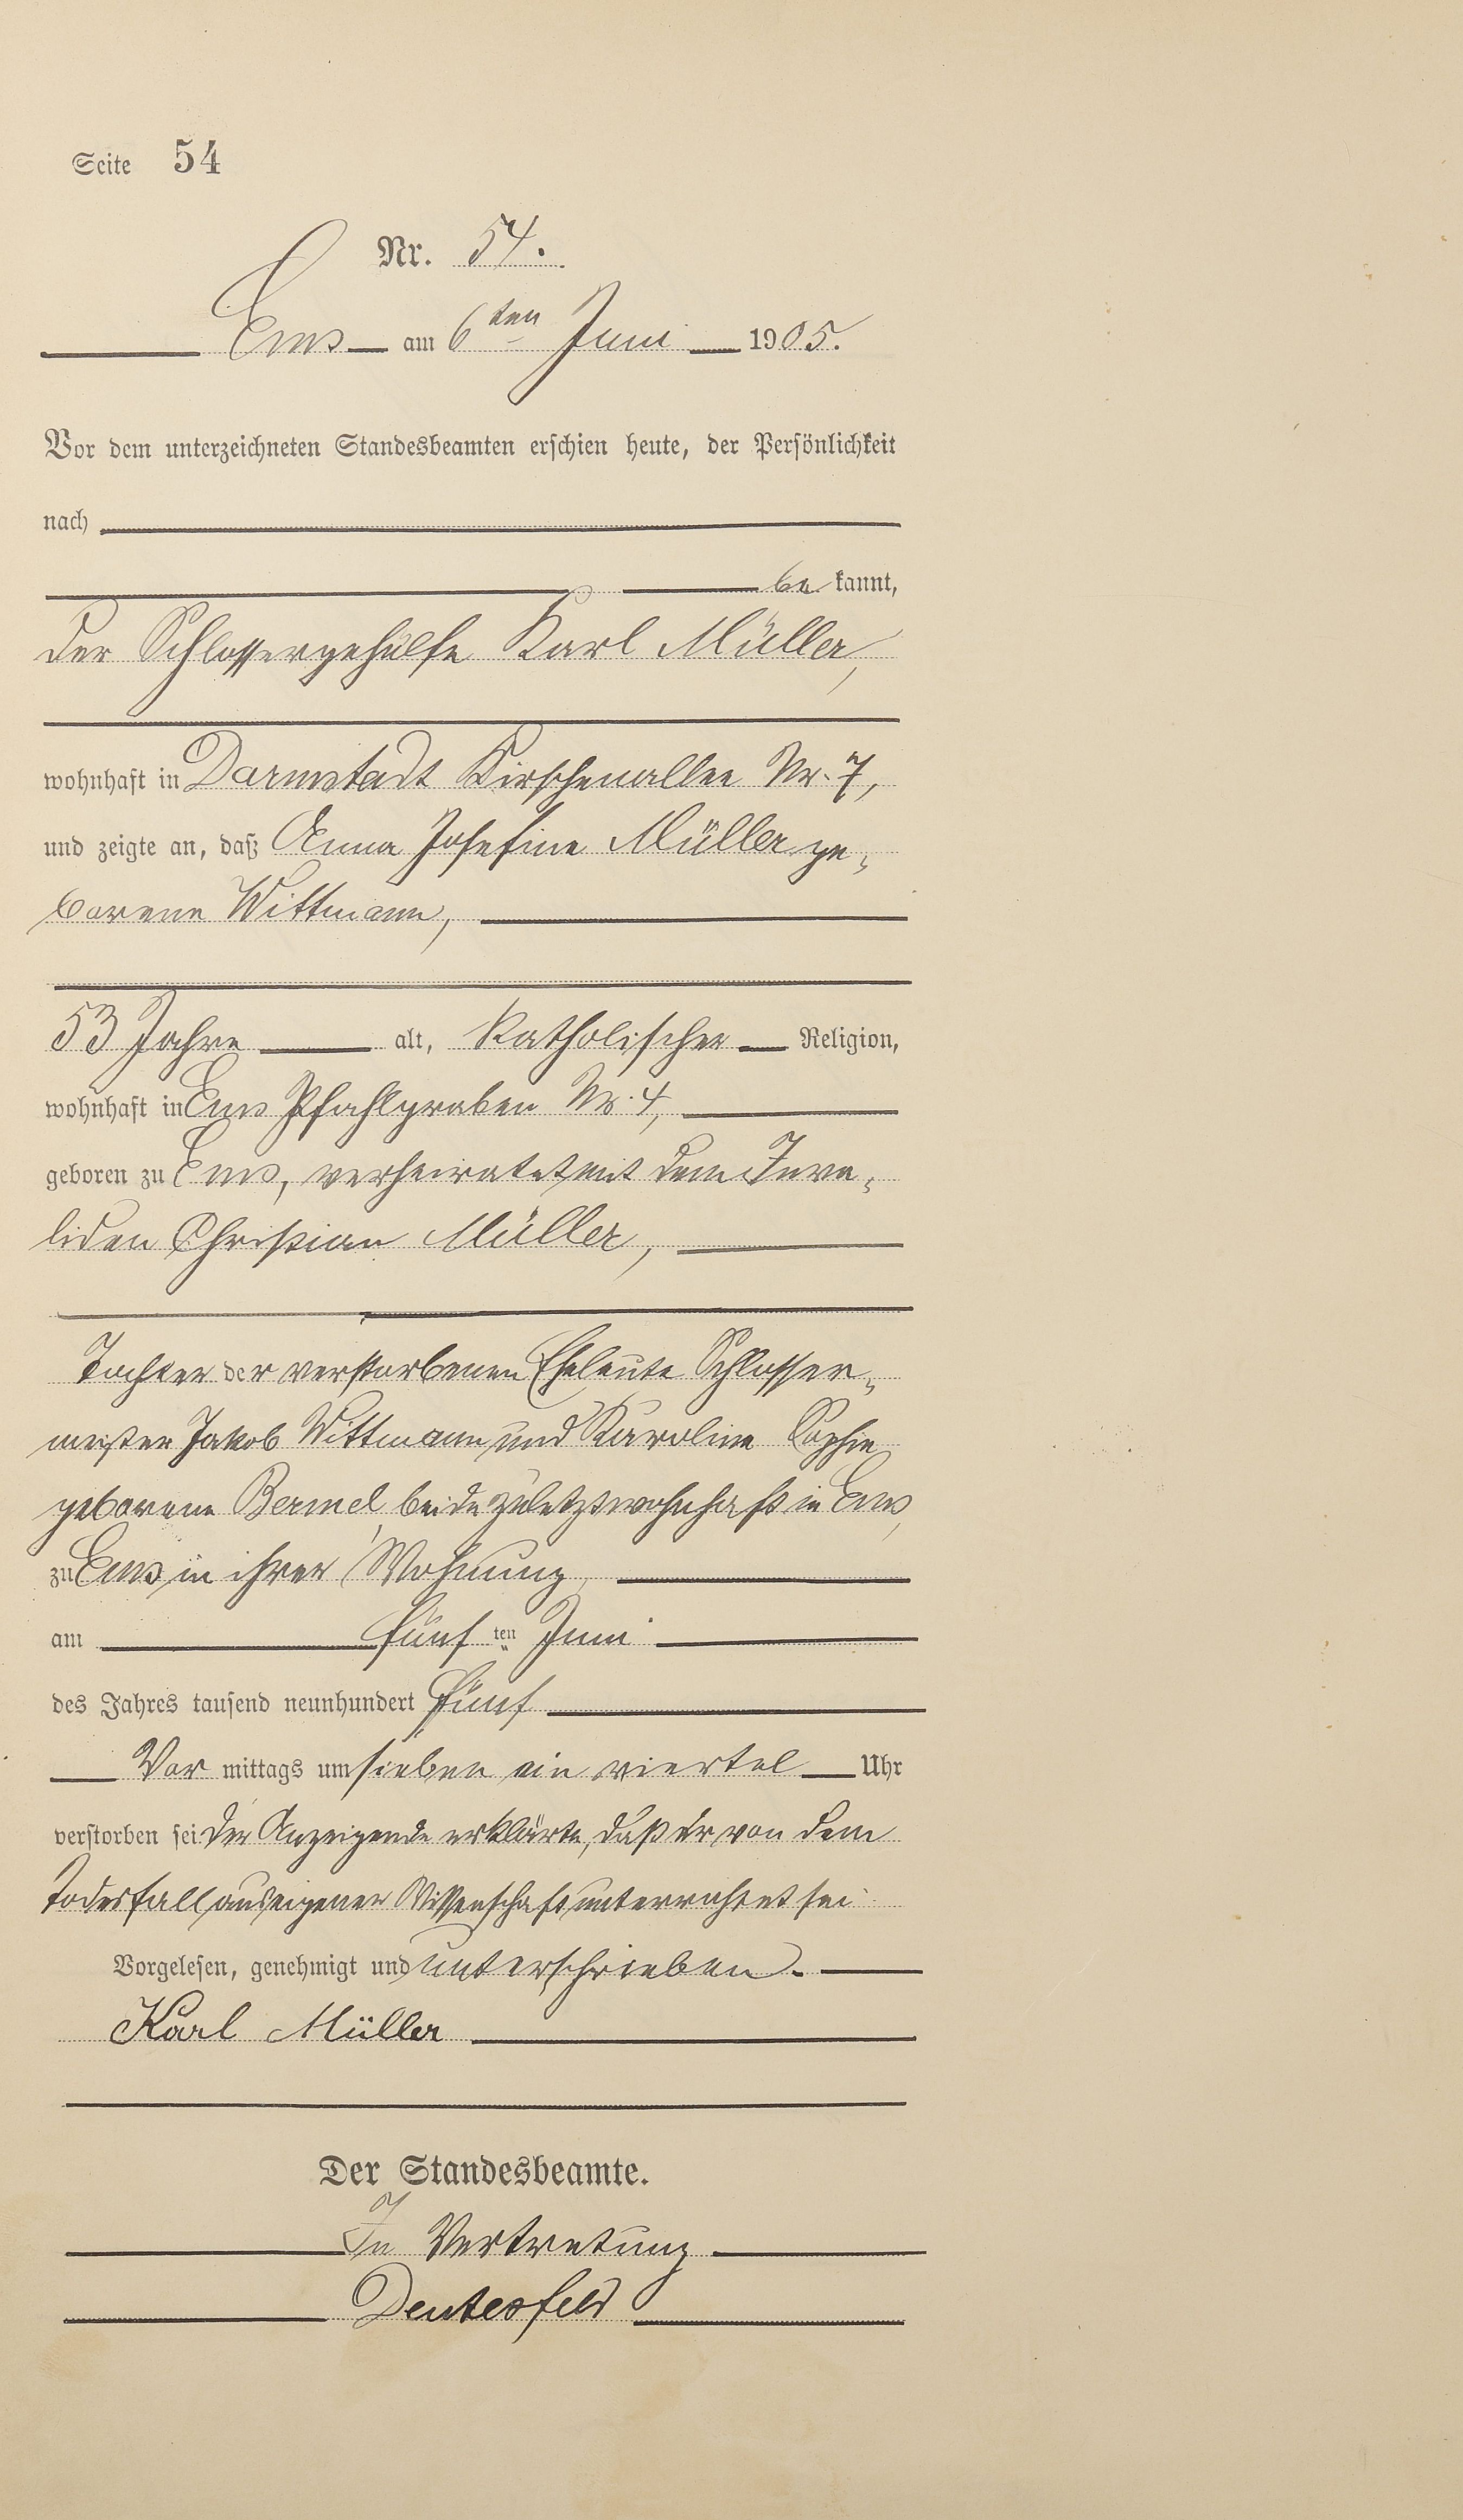 Seite 54
Nr. 54.
Ems am 6ten Juni 1905.
Vor dem unterzeichneten Standesbeamten erschien heute, der Persönlichkeit
nach
be kannt,
der Schlossergehülfe Karl Müller,
wohnhaft in Darmstadt Kirschenallee Nr. 7,
und zeigte an, daß Anna Josefine Müller ge-
borene Wittmann,
53 Jahre alt, Katholischer Religion,
wohnhaft in Ems Pfahlgraben Nr. 4,
geboren zu Ems, verheiratet mit dem Inva-
liden Christian Müller,
Tochter der verstorbenen Eheleute Schlosser-
meister Jakob Wittmann und Karoline Sophie
geborene Bermel, beide zuletzt wohnhaft in Ems,
zu Ems in ihrer Wohnung,
am fünf ten Juni
des Jahres tausend neunhundert fünf
Vor mittags um sieben ein viertel Uhr
verstorben sei. Der Anzeigende erklärte, daß er von dem
Todesfall aus eigener Wissenschaft unterrichtet sei
Vorgelesen, genehmigt und unterschrieben.
Karl Müller
Der Standesbeamte.
In Vertretung
Deutesfeld